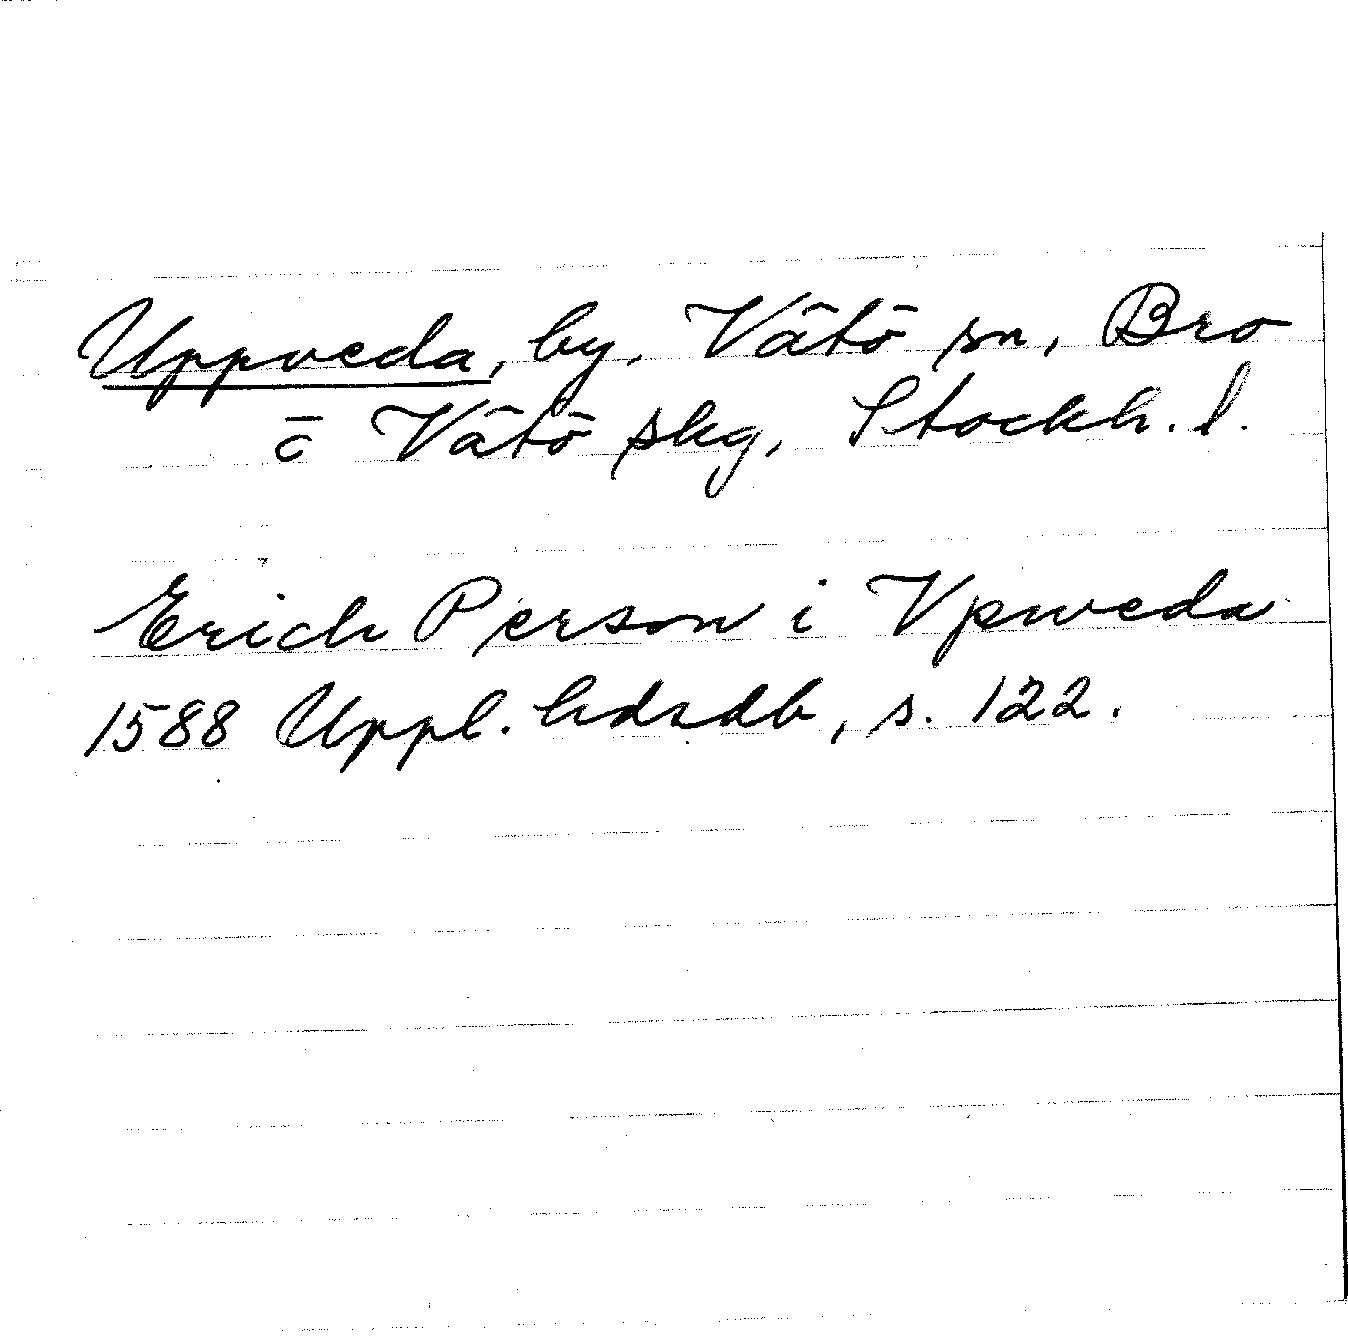 Uppveda, by, Vätö sn, Bro
o Vätö skg, Stockh. l.
Erich Person i Vpweda
1588 Uppl. hdrdb, s. 122.